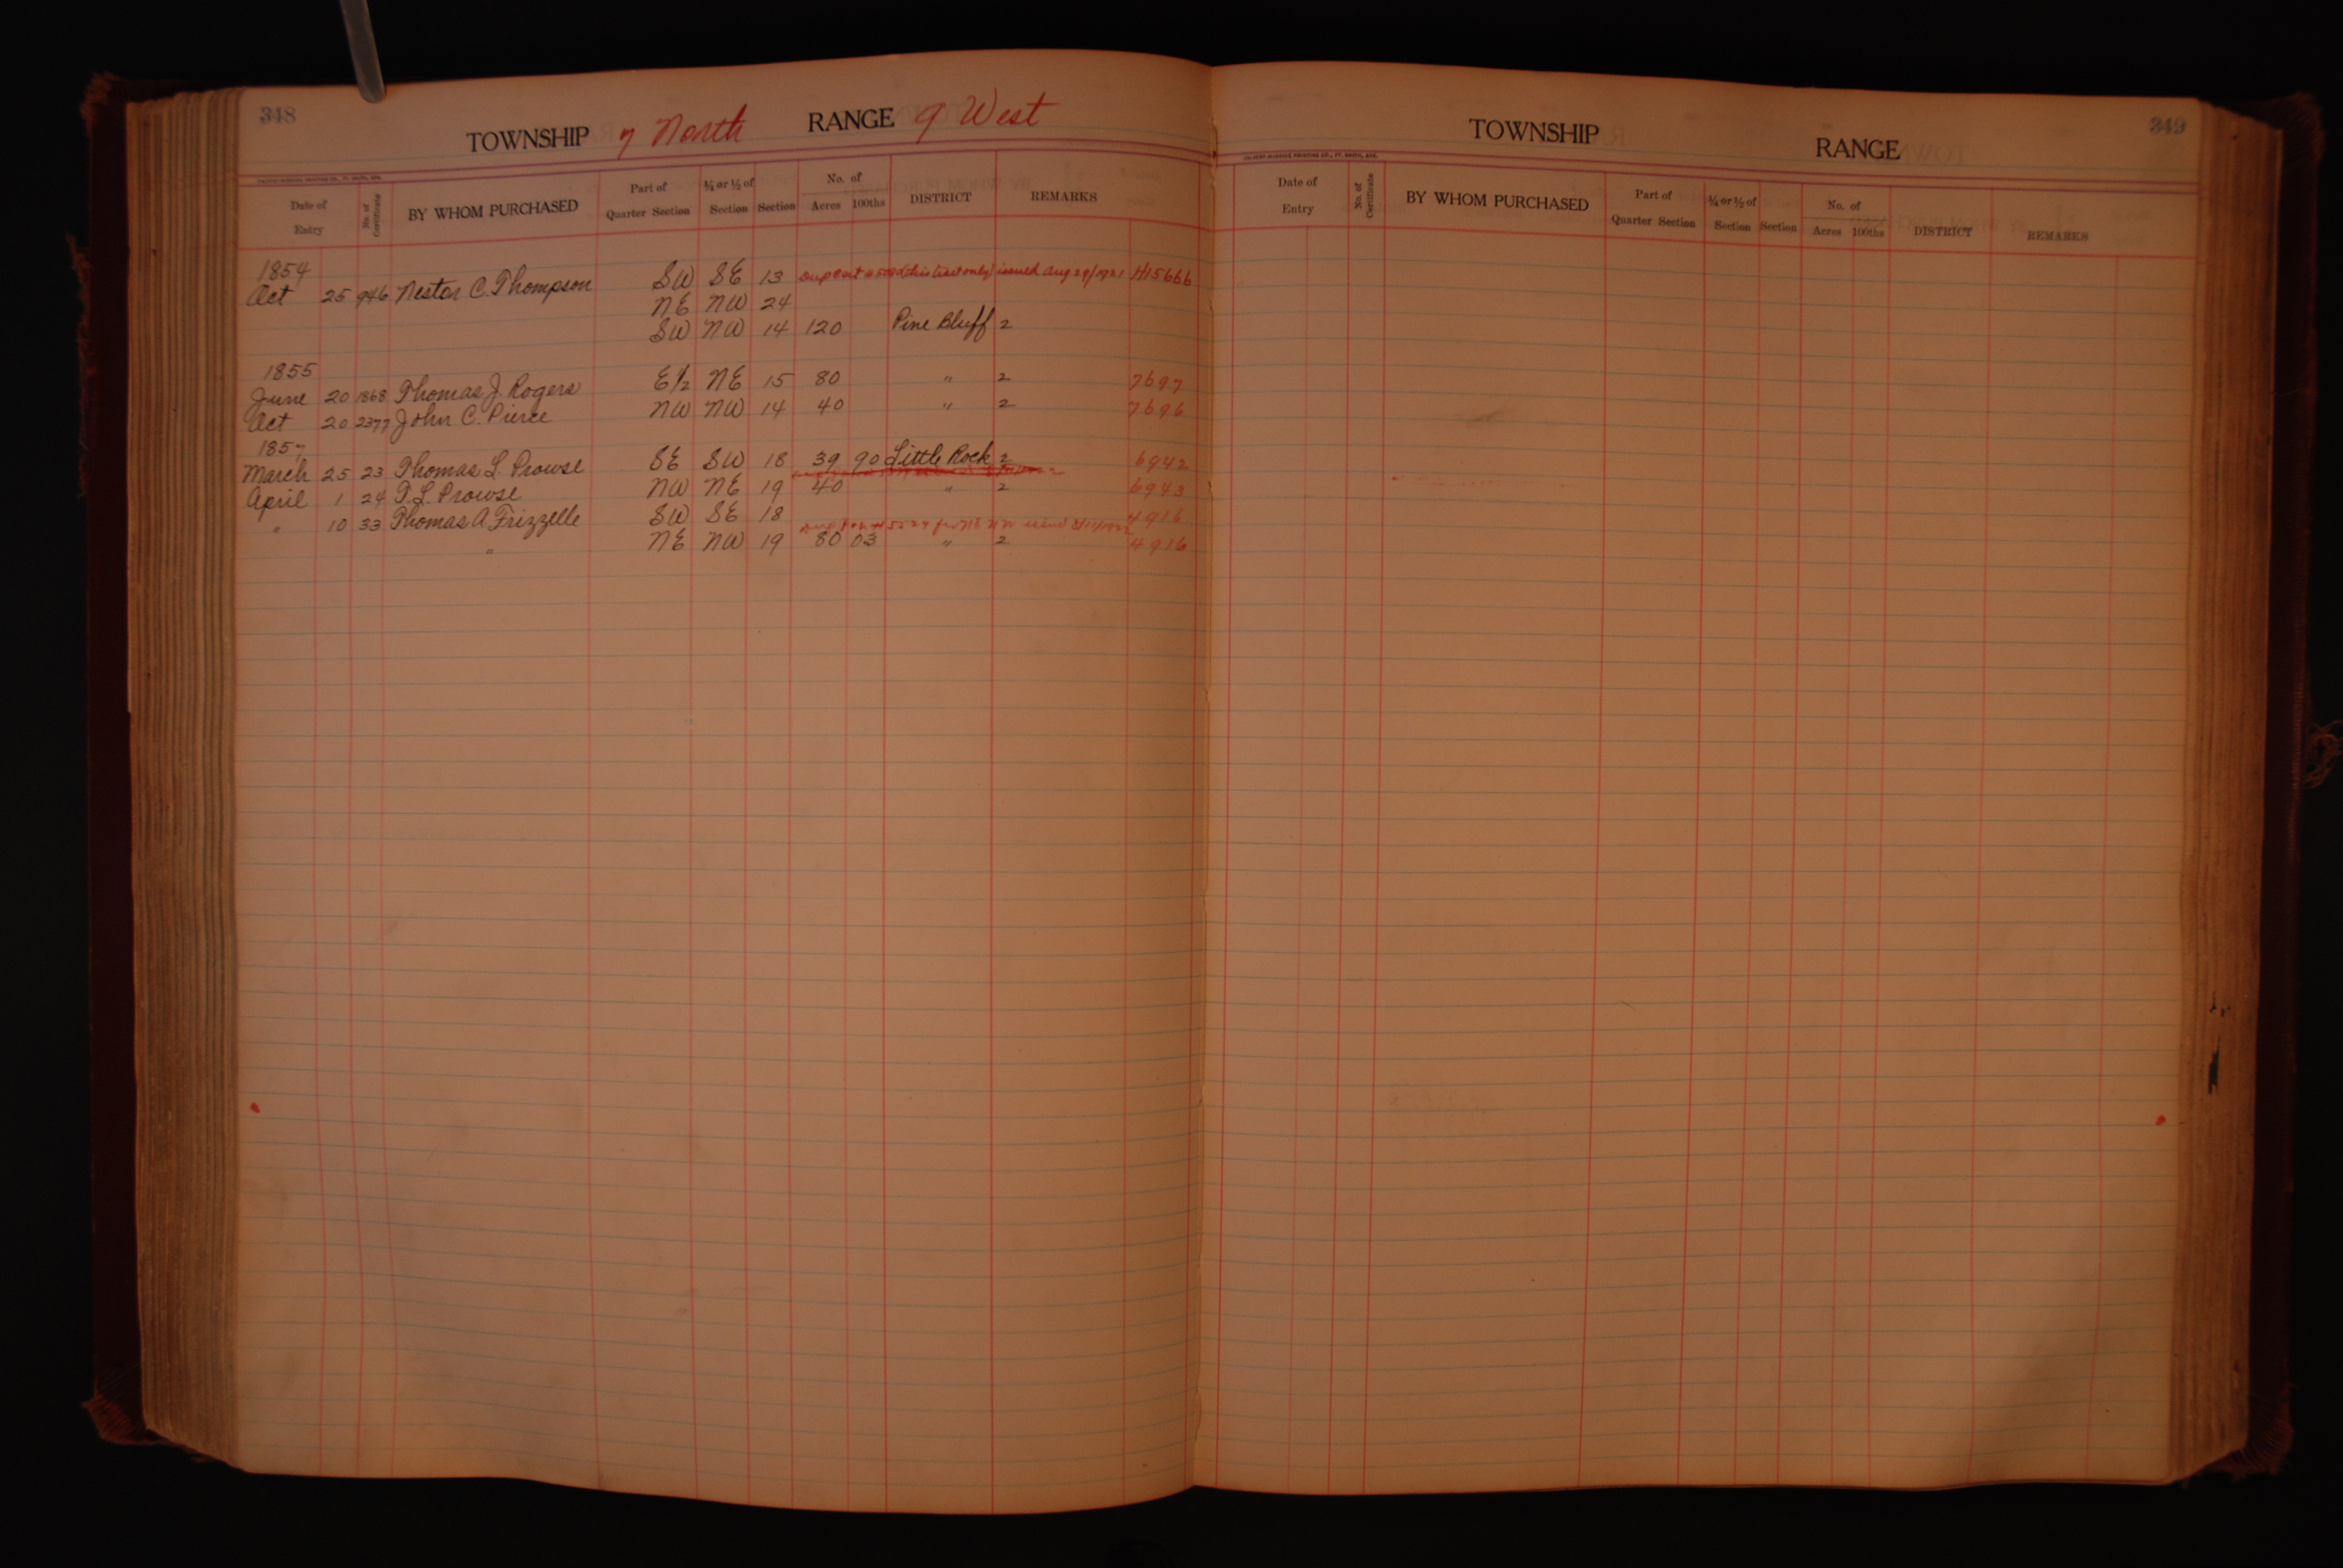 348
TOWNSHIP 7 North RANGE 9 West
Date of Entry No. of Certificate BY WHOM PURCHASED Part of Quarter Section ¼ or ½ of Section Section No. of Acres 100ths DISTRICT REMARKS
1854 SW SE 13 issued Aug 29/1921 H15666
Oct 25 946 Nestor C. Thompson NE NW 24
SW NW 14 120 Pine Bluff 2
1855
June 20 1868 Thomas J. Rogers E½ NE 15 80 " 2 7697
Oct 20 2377 John C. Pierce NW NW 14 40 " 2 7696
1857
March 25 23 Thomas L. Prowse SE SW 18 39 90 Little Rock 2 6942
April 1 24 T. L. Prowse NW NE 19 40 " 2 6943
" 10 33 Thomas A Frizzelle SW SE 18 4916
" NE NW 19 80 03 " 2 4916
349
TOWNSHIP RANGE
Date of Entry No. of Certificate BY WHOM PURCHASED Part of Quarter Section ¼ or ½ of Section Section No. of Acres 100ths DISTRICT REMARKS